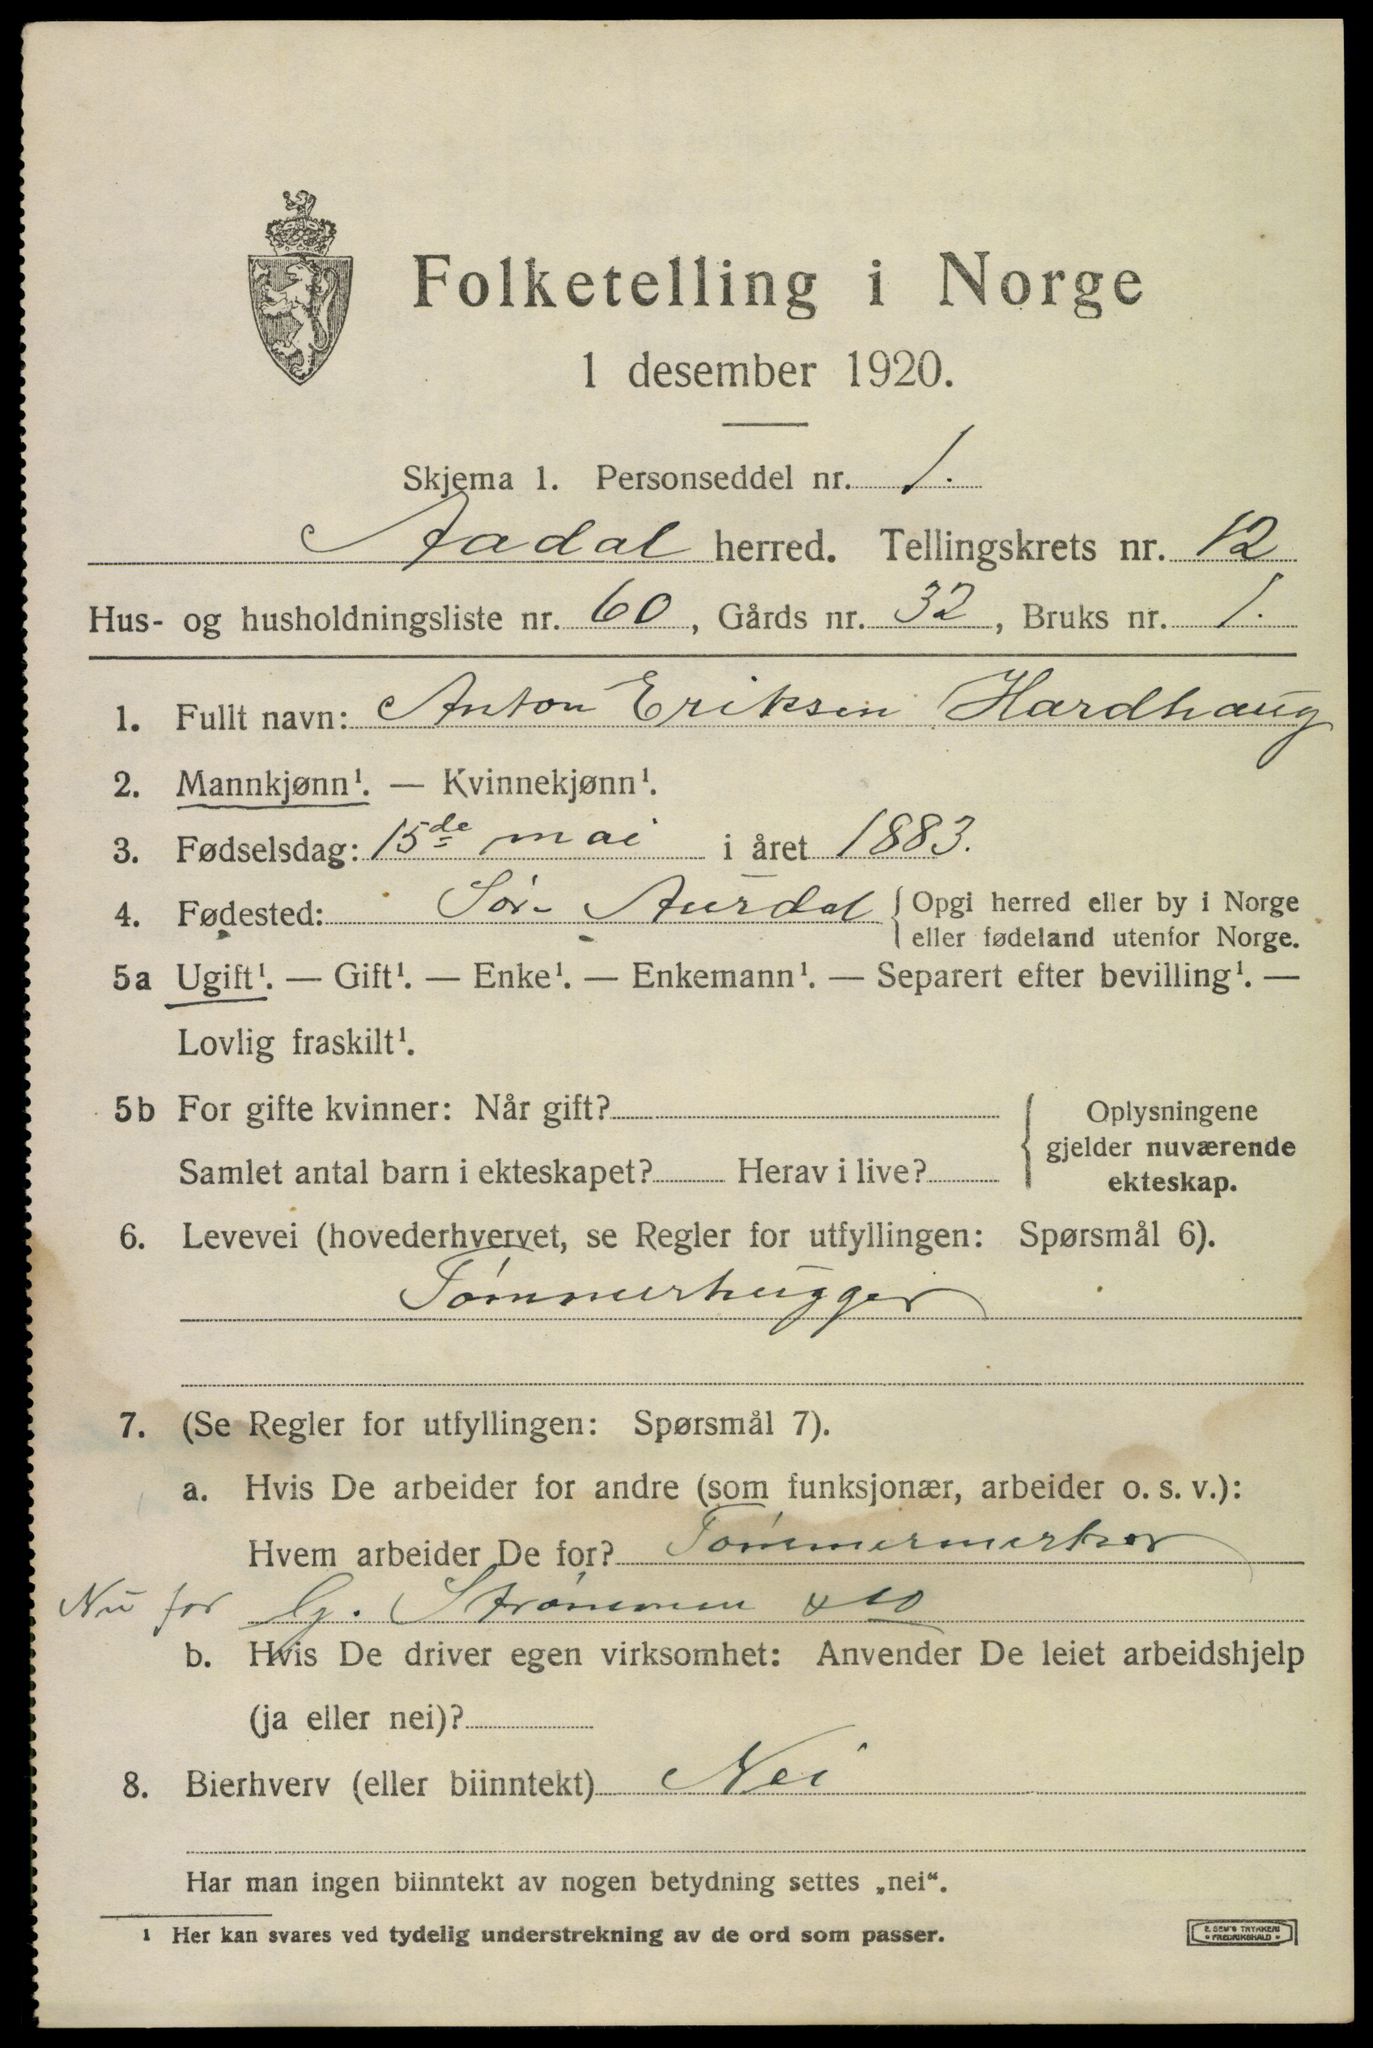 Folketelling i Norge
1 desember 1920.
Skjema 1. Personseddel nr. 1.
Aadal herred. Tellingskrets nr. 12
Hus- og husholdningsliste nr. 60, Gårds nr. 32, Bruks nr. 1.
1. Fullt navn: Anton Eriksen Hardhaug
2. Mannkjønn¹. — Kvinnekjønn¹.
3. Fødselsdag: 15de mai i året 1883.
4. Fødested: Sør-Aurdal { Opgi herred eller by i Norge
eller fødeland utenfor Norge.
5a Ugift¹. — Gift¹. — Enke¹. — Enkemann¹. — Separert efter bevilling¹. —
Lovlig fraskilt¹.
5b For gifte kvinner: Når gift?
Samlet antal barn i ekteskapet? Herav i live?
{ Oplysningene
gjelder nuværende
ekteskap.
6. Levevei (hovederhvervet, se Regler for utfyllingen: Spørsmål 6).
Tømmerhugger
7. (Se Regler for utfyllingen: Spørsmål 7).
a. Hvis De arbeider for andre (som funksjonær, arbeider o. s. v.):
Hvem arbeider De for?
Nu for G. Strømmen & Co
b. Hvis De driver egen virksomhet: Anvender De leiet arbeidshjelp
(ja eller nei)?
8. Bierhverv (eller biinntekt) Nei
Har man ingen biinntekt av nogen betydning settes „nei“.
¹ Her kan svares ved tydelig understrekning av de ord som passer.
E. SEM'S TRYKKERI
FREDRIKSHALD